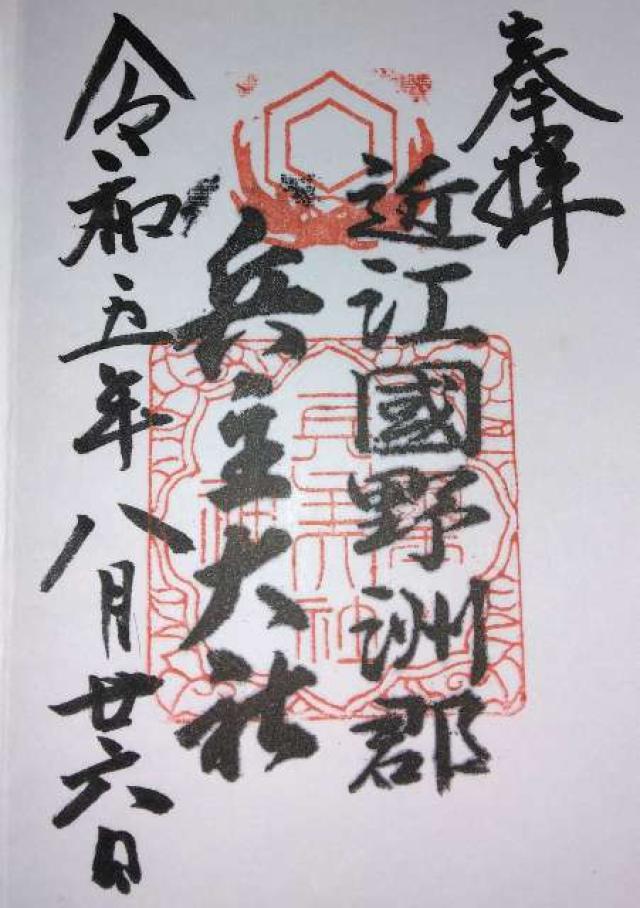 奉拝
近江國野洲郡
兵主大社
令和五年八月廿六日